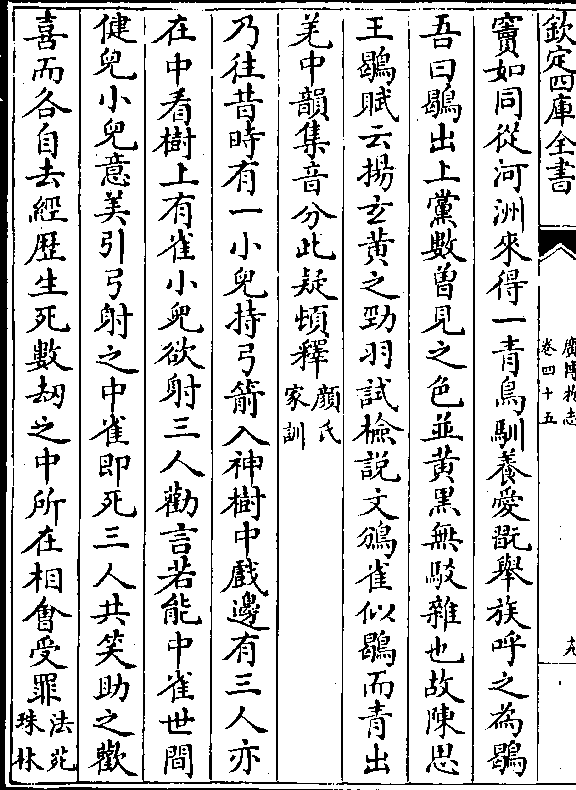 欽定四庫全書
廣博物志
卷四十五
十九
竇如同從河洲來得一青鳥馴養愛翫舉族呼之為鶡
吾曰鶡出上黨數曽見之色並黄黑無駁雜也故陳思
王鶡賦云揚玄黄之勁羽試檢説文鳻雀似鶡而青出
羌中韻集音分此疑頓釋顔氏家訓
乃往昔時有一小兒持弓箭入神樹中戲邊有三人亦
在中看樹上有雀小兒欲射三人勸言若能中雀世間
健兒小兒意美引弓射之中雀即死三人共笑助之歡
喜而各自去經歷生死數刼之中所在相會受罪法苑珠林